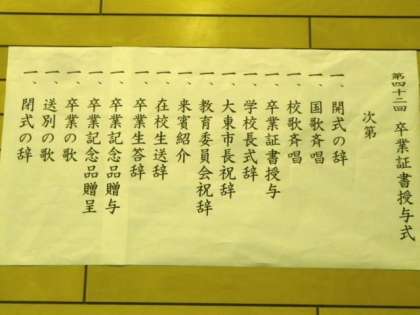 第四十二回 卒業証書授与式
次第
一、開式の辞
一、国歌斉唱
一、校歌斉唱
一、卒業証書授与
一、学校長式辞
一、大東市長祝辞
一、教育委員会祝辞
一、来賓紹介
一、在校生送辞
一、卒業生答辞
一、卒業記念品授与
一、卒業記念品贈呈
一、卒業の歌
一、送別の歌
一、閉式の辞